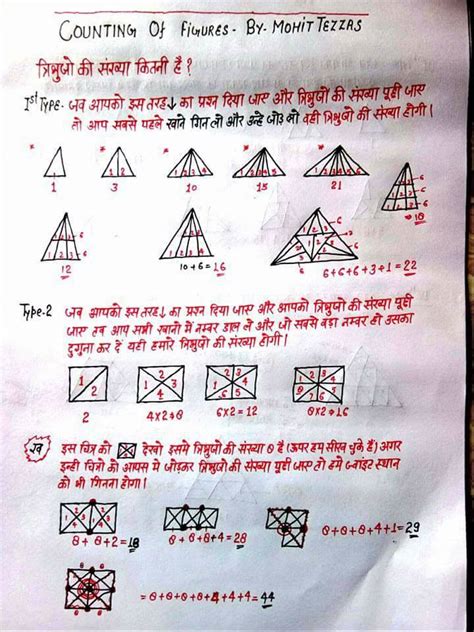 COUNTING OF FIGURES - BY- MOHIT TEZZAS
त्रिभुजो की संख्या कितनी है ?
Ist Type- जब आपको इस तरह↓ का प्रश्न दिया जाए और त्रिभुजो की संख्या पूछी जाए
तो आप सबसे पहले खाने गिन लो और उन्हे जोड़ लो वही त्रिभुजो की संख्या होगी।
1 3 10 15 21
12 10+6=16 6+6+6+3+1=22 18
Type-2 जब आपको इस तरह↓ का प्रश्न दिया जाए और आपको त्रिभुजो की संख्या पूछी
जाए तब आप सभी खानों में नम्बर डाल ले और जो सबसे बड़ा नम्बर हो उसका
दुगुना कर दें यही हमारे त्रिभुजो की संख्या होगी।
1 2
1 2 3 4
1 2 3 4 5 6
1 2 3 4 5 6 7 8
2 4x2=8 6x2=12 8x2=16
इस चित्र को देखो इसमे त्रिभुजो की संख्या 8 है (ऊपर हम सीख चुके हैं) अगर
इन्ही चित्रो को आपस मे जोड़कर त्रिभुजो की संख्या पूछी जाए तो हमे ज्वाइंट स्थान
को भी गिनना होगा।
8+8+2=18 8+8+8+4=28 8+8+8+4+1=29
=8+8+8+8+4+4+4=44